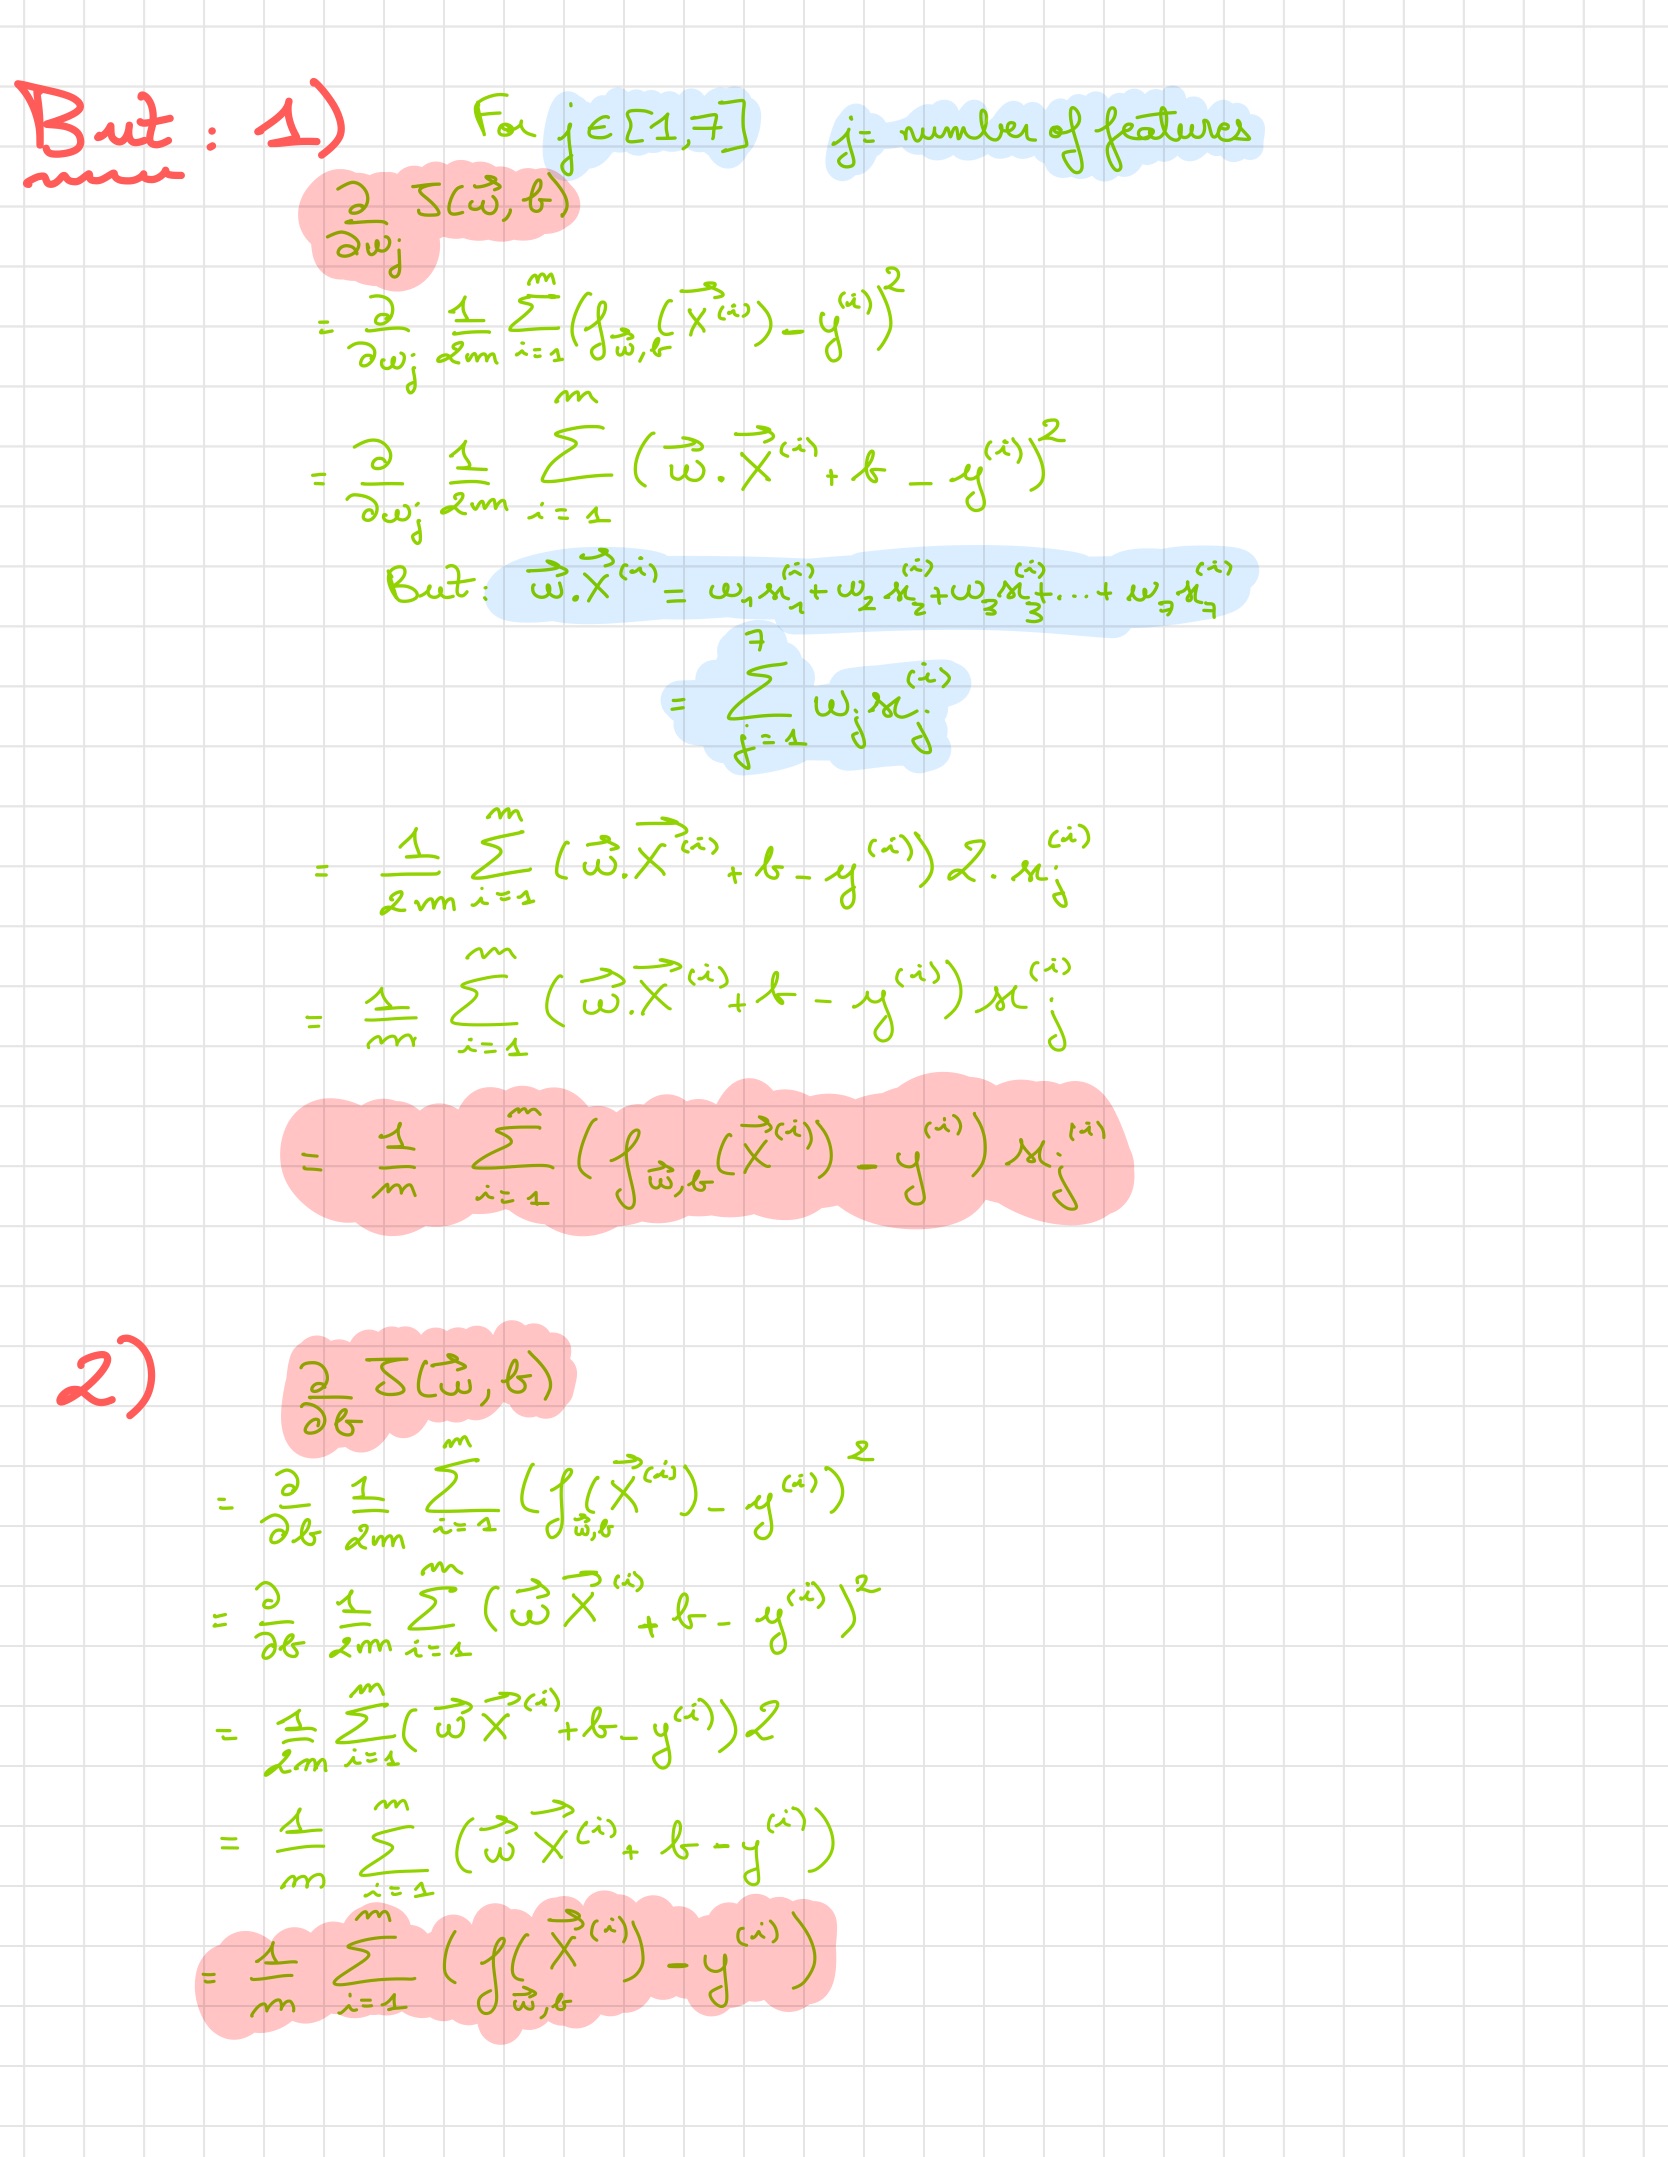 But : 1) For j ∈ [1,7] j = number of features
∂/∂w_j J(w⃗, b)
= ∂/∂w_j 1/2m ∑_{i=1}^{m} (f_{w⃗,b}(X⃗^{(i)}) - y^{(i)})^2
= ∂/∂w_j 1/2m ∑_{i=1}^{m} (w⃗ . X⃗^{(i)} + b - y^{(i)})^2
But : w⃗ . X⃗^{(i)} = w_1 x_1^{(i)} + w_2 x_2^{(i)} + w_3 x_3^{(i)} + ... + w_7 x_7^{(i)}
= ∑_{j=1}^{7} w_j x_j^{(i)}
= 1/2m ∑_{i=1}^{m} (w⃗ . X⃗^{(i)} + b - y^{(i)}) 2 . x_j^{(i)}
= 1/m ∑_{i=1}^{m} (w⃗ . X⃗^{(i)} + b - y^{(i)}) x_j^{(i)}
= 1/m ∑_{i=1}^{m} (f_{w⃗,b}(X⃗^{(i)}) - y^{(i)}) x_j^{(i)}
2) ∂/∂b J(w⃗, b)
= ∂/∂b 1/2m ∑_{i=1}^{m} (f_{w⃗,b}(X⃗^{(i)}) - y^{(i)})^2
= ∂/∂b 1/2m ∑_{i=1}^{m} (w⃗ X⃗^{(i)} + b - y^{(i)})^2
= 1/2m ∑_{i=1}^{m} (w⃗ X⃗^{(i)} + b - y^{(i)}) 2
= 1/m ∑_{i=1}^{m} (w⃗ X⃗^{(i)} + b - y^{(i)})
= 1/m ∑_{i=1}^{m} (f_{w⃗,b}(X⃗^{(i)}) - y^{(i)})